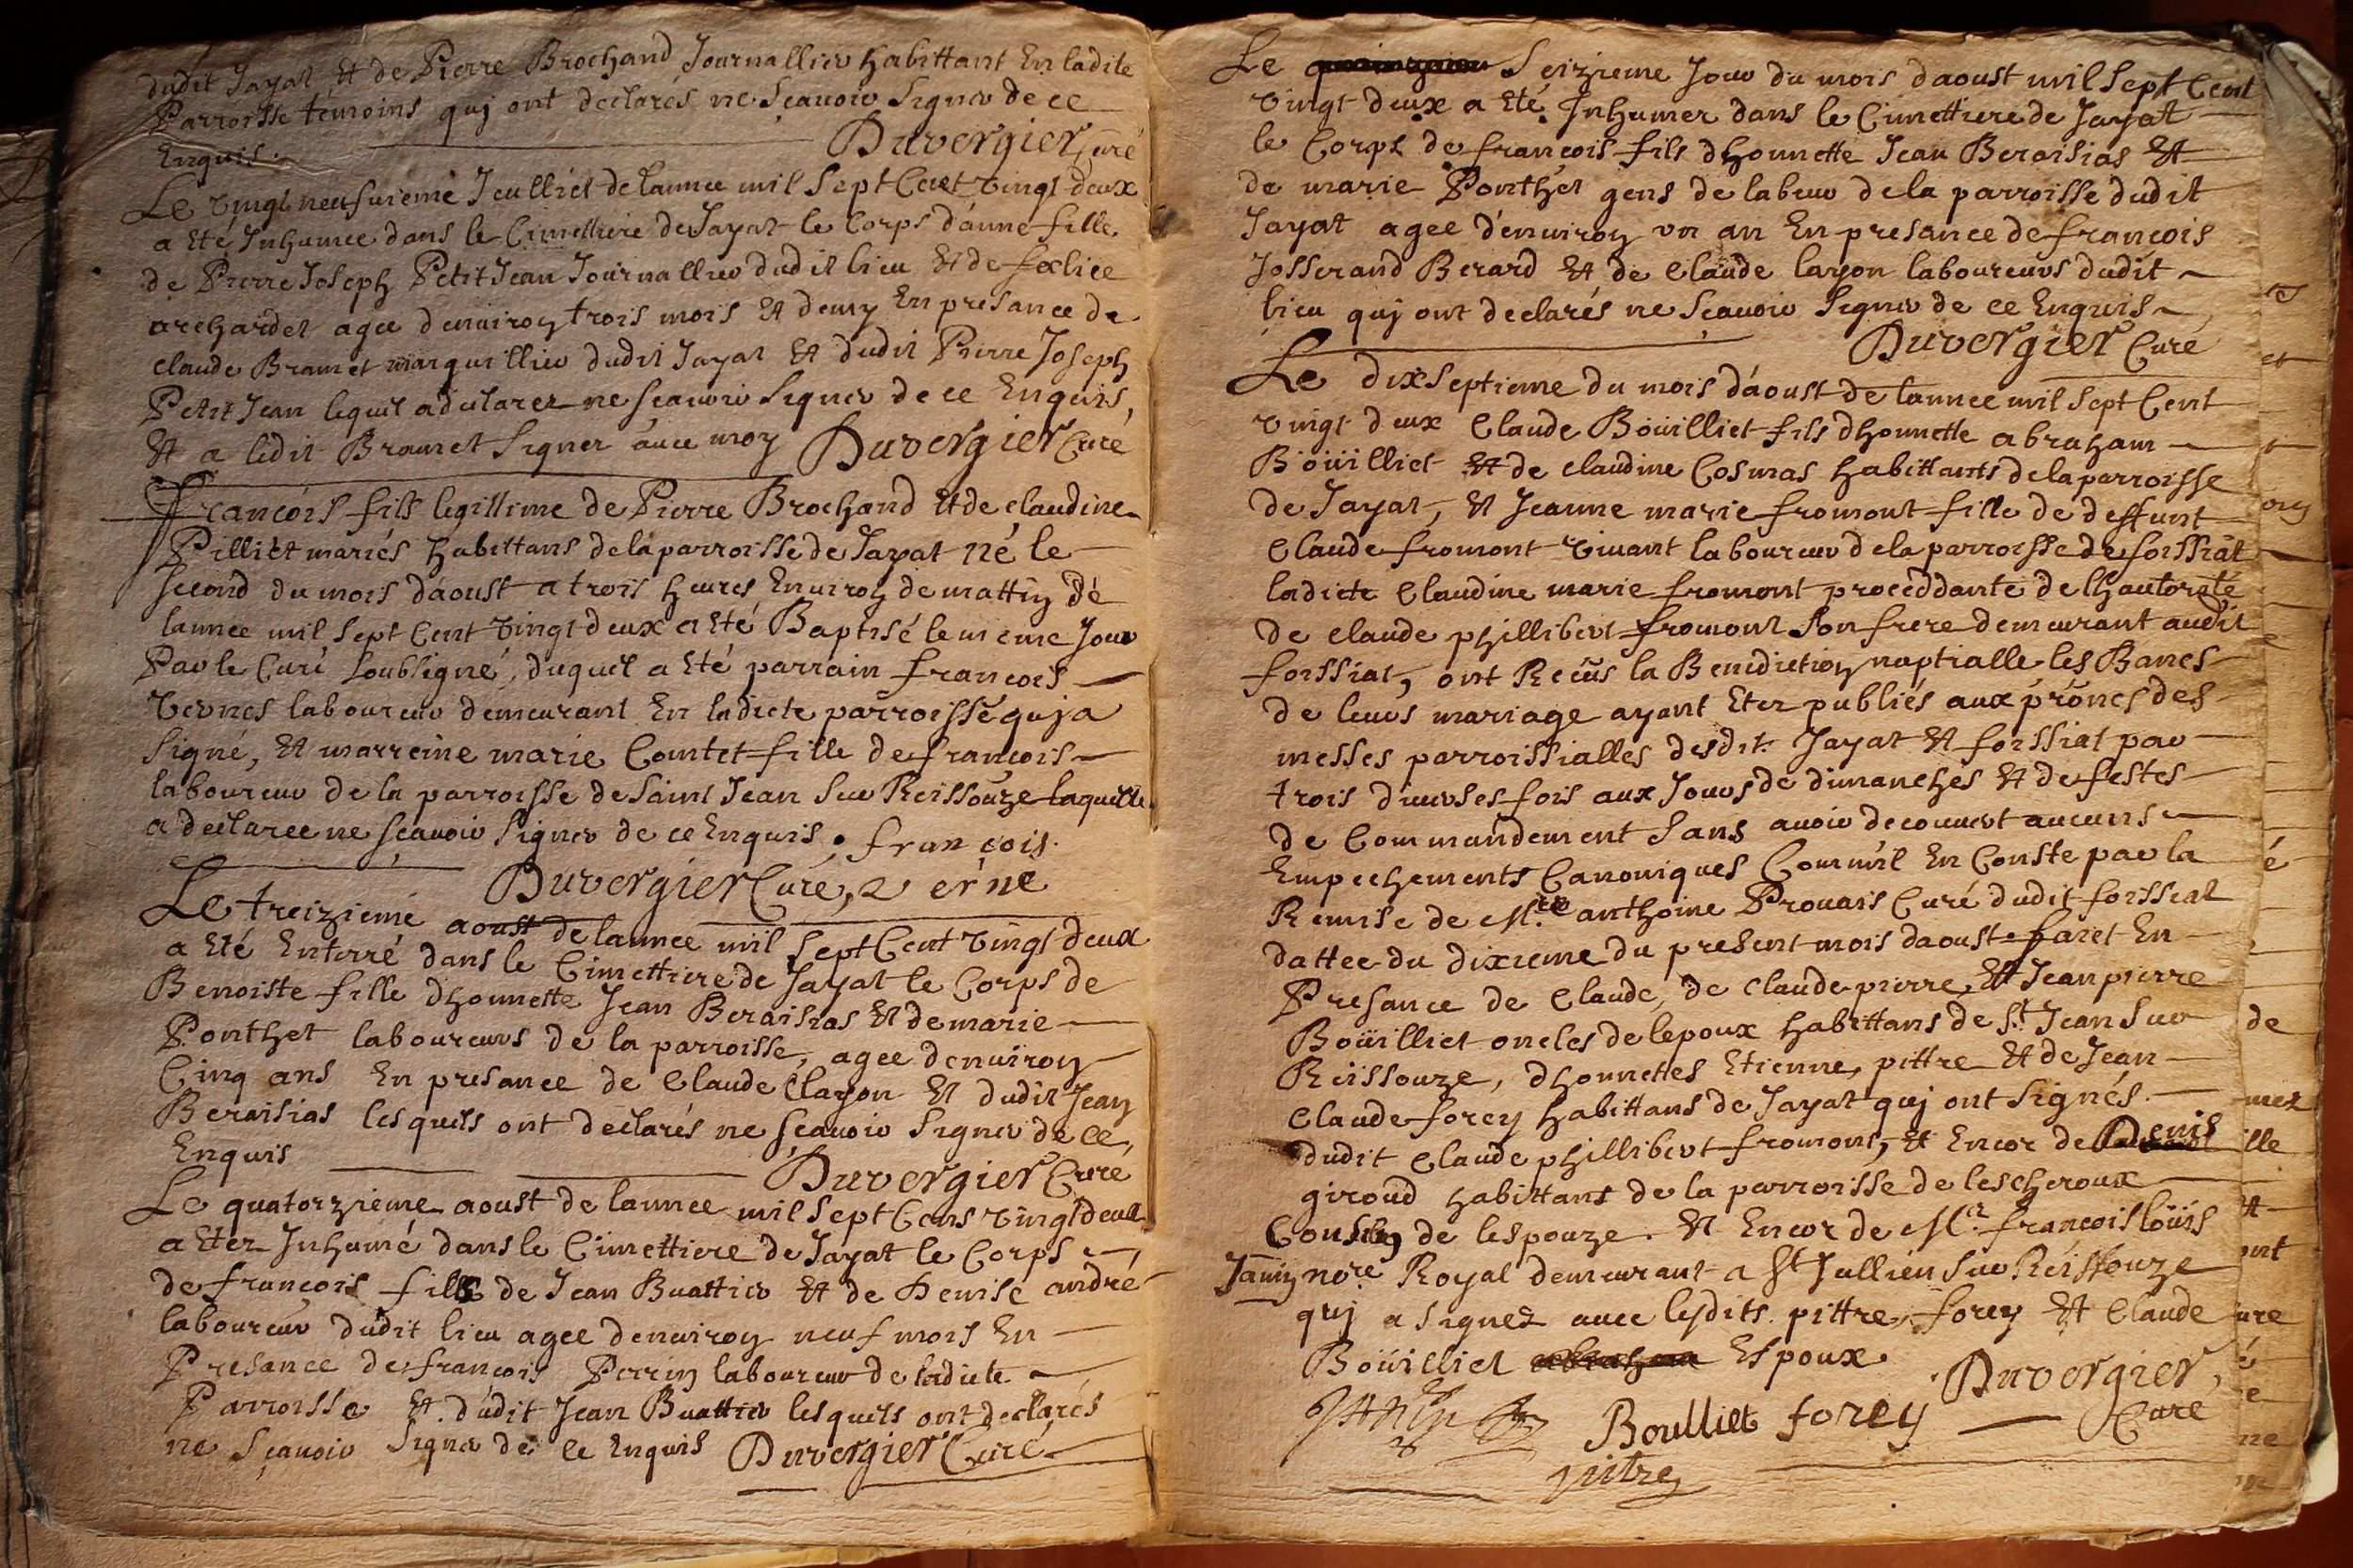 dudit Jayat Et de Pierre Brochand Journallier habittant En ladite
Parroisse temoins quj ont declarés ne Sçauoir Signer de ce
Enquis.
Duvergier Curé
Le vingt neufuieme Jeulliet de lannee mil Sept Cent vingt deux
a Eté Inhumee dans le Cimettiere de Jayat le Corps d'unne fille
de Pierre Joseph PetitJean Journallier dudit lieu Et de foelice
archardet agee denuiroy trois mois Et demy En presance de
claude Bramet marguillier dudit Jayat Et dudit Pierre Joseph
Petit Jean lequel a declarez ne scauoir Signer de ce Enquis,
Et a ledit Bramet Signer auec moy Duvergier Curé
François fils legittime de Pierre Brochand Et de claudine
Pilliet mariés habittans de la parroisse de Jayat né le
second du mois d'aoust a trois heures Enuiroy de mattiy de
lannee mil Sept Cent vingt deux a Eté Baptisé le meme Jour
Par le Curé Soubsigné, duquel a Eté parrain françois
vernes laboureur demeurant En ladicte parroisse quj a
Signé, Et marreine marie Comtet fille de françois
laboureur de la parroisse de Saint Jean Sur Reissouze laquelle
a declaree ne sçauoir Signer de ce Enquis. françois
Duvergier Curé, verne
Le treizieme aoust de lannee mil Sept Cent vingt deux
a Eté Enterré dans le Cimettiere de Jayat le Corps de
Benoiste fille dhonnette Jean Beraisias Et de marie
Ponthet laboureurs de la parroisse, agee denuiroy
Cinq ans En presance de Claude Clayon Et dudit Jeay
Beraisias lesquels ont declarés ne sçauoir Signer de ce
Enquis
Duvergier Curé
Le quatorzieme aoust de lannee mil Sept Cens vingt deux
a Etez Inhumé dans le Cimettiere de Jayat le Corps
de françois fills de Jean Buattier Et de Denise andré
laboureur dudit lieu agee denuiroy neuf mois En
Presance de françois Perriy laboureur de ladicte
Parroisse Et dudit Jean Buattier lesquels ont declarés
ne Sçauoir Signer de ce Enquis Duvergier Curé
Le Seizieme Jour du mois daoust mil Sept Cent
vingt deux a Eté Inhumer dans le Cimettiere de Jayat
le Corps de françois fils dhonnette Jean Beraisias Et
de marie Ponthet gens de labeur de la parroisse dudit
Jayat agee d'enuiroy un an En presance de françois
Josserand Berard Et de Claude layon laboureurs dudit
lieu quj ont declarés ne Scauoir Signer de ce Enquis
Duvergier Curé
Le dixSeptieme du mois d'aoust de lannee mil Sept Cent
vingt deux Claude Boüilliet fils dhonnette abraham
Boüilliet Et de claudine Cosmas habittants de la parroisse
de Jayat, Et Jeanne marie fromont fille de deffunt
Claude fromont viuant laboureur de la parroisse de foissiat
ladicte Claudine marie fromont proceddante de lhautorité
de claude phillibert fromont Son frere demeurant audit
foissiat, ont Reçus la Benedictioy nuptialle les Bancs
de leurs mariage ayant Etez publiés aux prônes des
messes parroissialles desdit. Jayat Et foissiat par
trois diuerses fois aux Jours de dimanches Et de festes
de Commandement Sans auoir decouuert aucuns
Empechements Canoniques Comm'il En Conste par la
Remise de Mre anthoine Prouais Curé dudit foissiat
dattee du dixieme du present mois daoust faict En
Presance de Claude, de claude pierre, Et Jean pierre
Boüilliet oncles de lepoux habittans de St Jean Sur
Reissouze, dhonnettes Etienne pittre Et de Jean
Claude forey habittans de Jayat quj ont Signés.
dudit Claude phillibert fromont, Et Encor de Denis
giroud habittans de la parroisse de lescheroux
Cousiy de lespouze. Et Encor de Mre françois loüis
Janiy nore Royal demeurant a St Jullien Sur Reissouze
quj a Signez auec lesdits. pittre, forey Et Claude
Boüilliet Espoux.
Duvergier, Curé
Janiy Boulliet forey
pitre